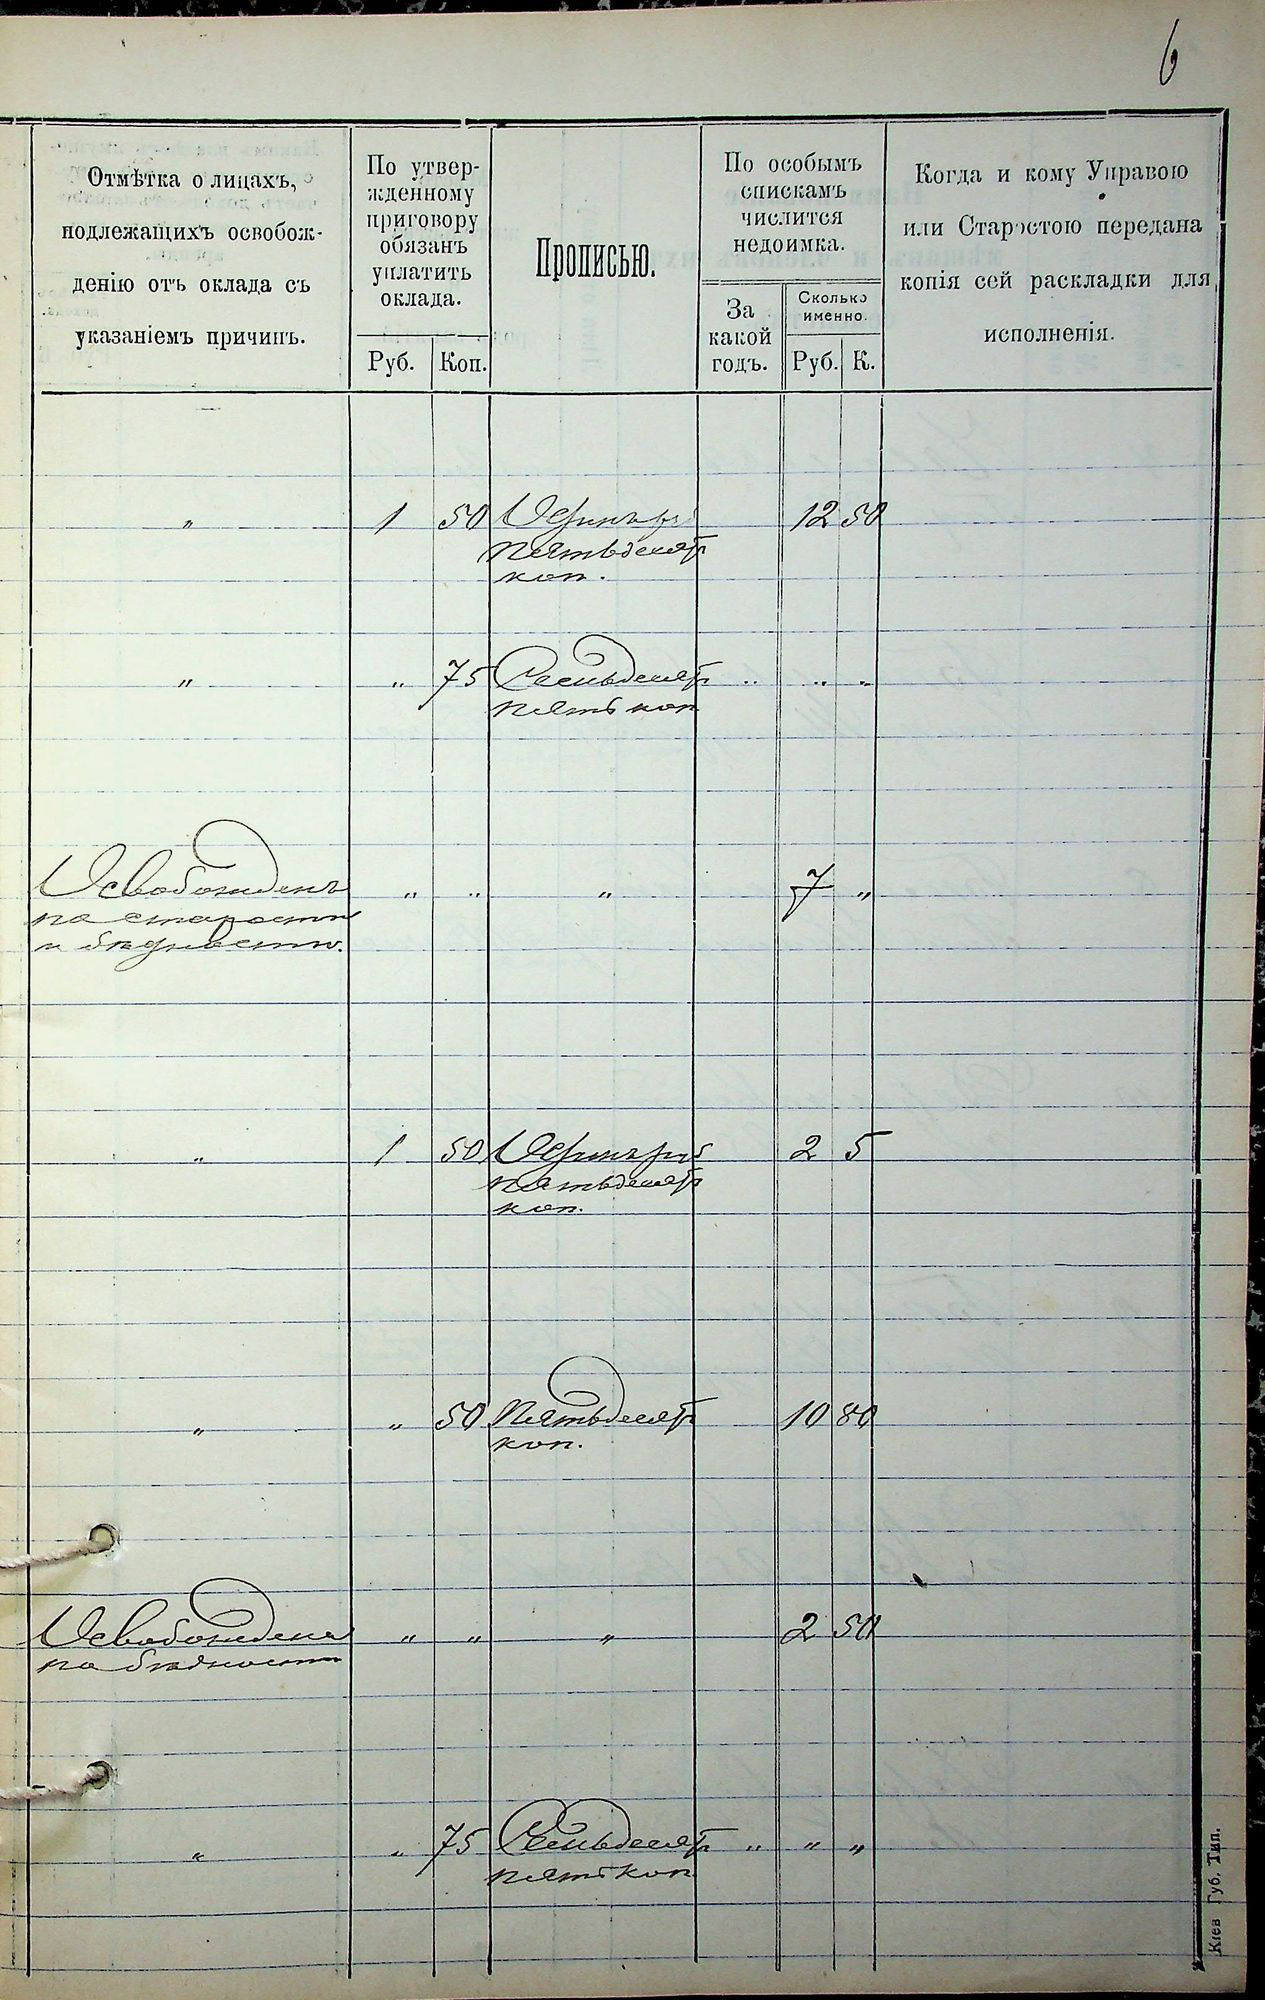 6
Отмѣтка о лицахъ,
подлежащихъ освобож-
денію отъ оклада съ
указаніемъ причинъ.
По утвер-
жденному
приговору
обязанъ
уплатить
оклада.
Руб. Коп.
Прописью.
По особымъ
спискамъ
числится
недоимка.
За
какой
годъ.
Сколько
именно.
Руб. К.
Когда и кому Управою
или Старостою передана
копія сей раскладки для
исполненія.
" 1 50 Одинъ руб 12 50
пятьдесятъ
коп.
" " 75 Семьдесятъ " " "
пять коп
Освобожденъ " " " 7 "
по старости
и бѣдности.
" 1 50 Одинъ руб 2 5
пятьдесятъ
коп.
" " 50 Пятьдесятъ 10 80
коп.
Освобождена " " " 2 50
по бѣдности
" " 75 Семьдесятъ " " "
пять коп
Кіев Губ. Тип.